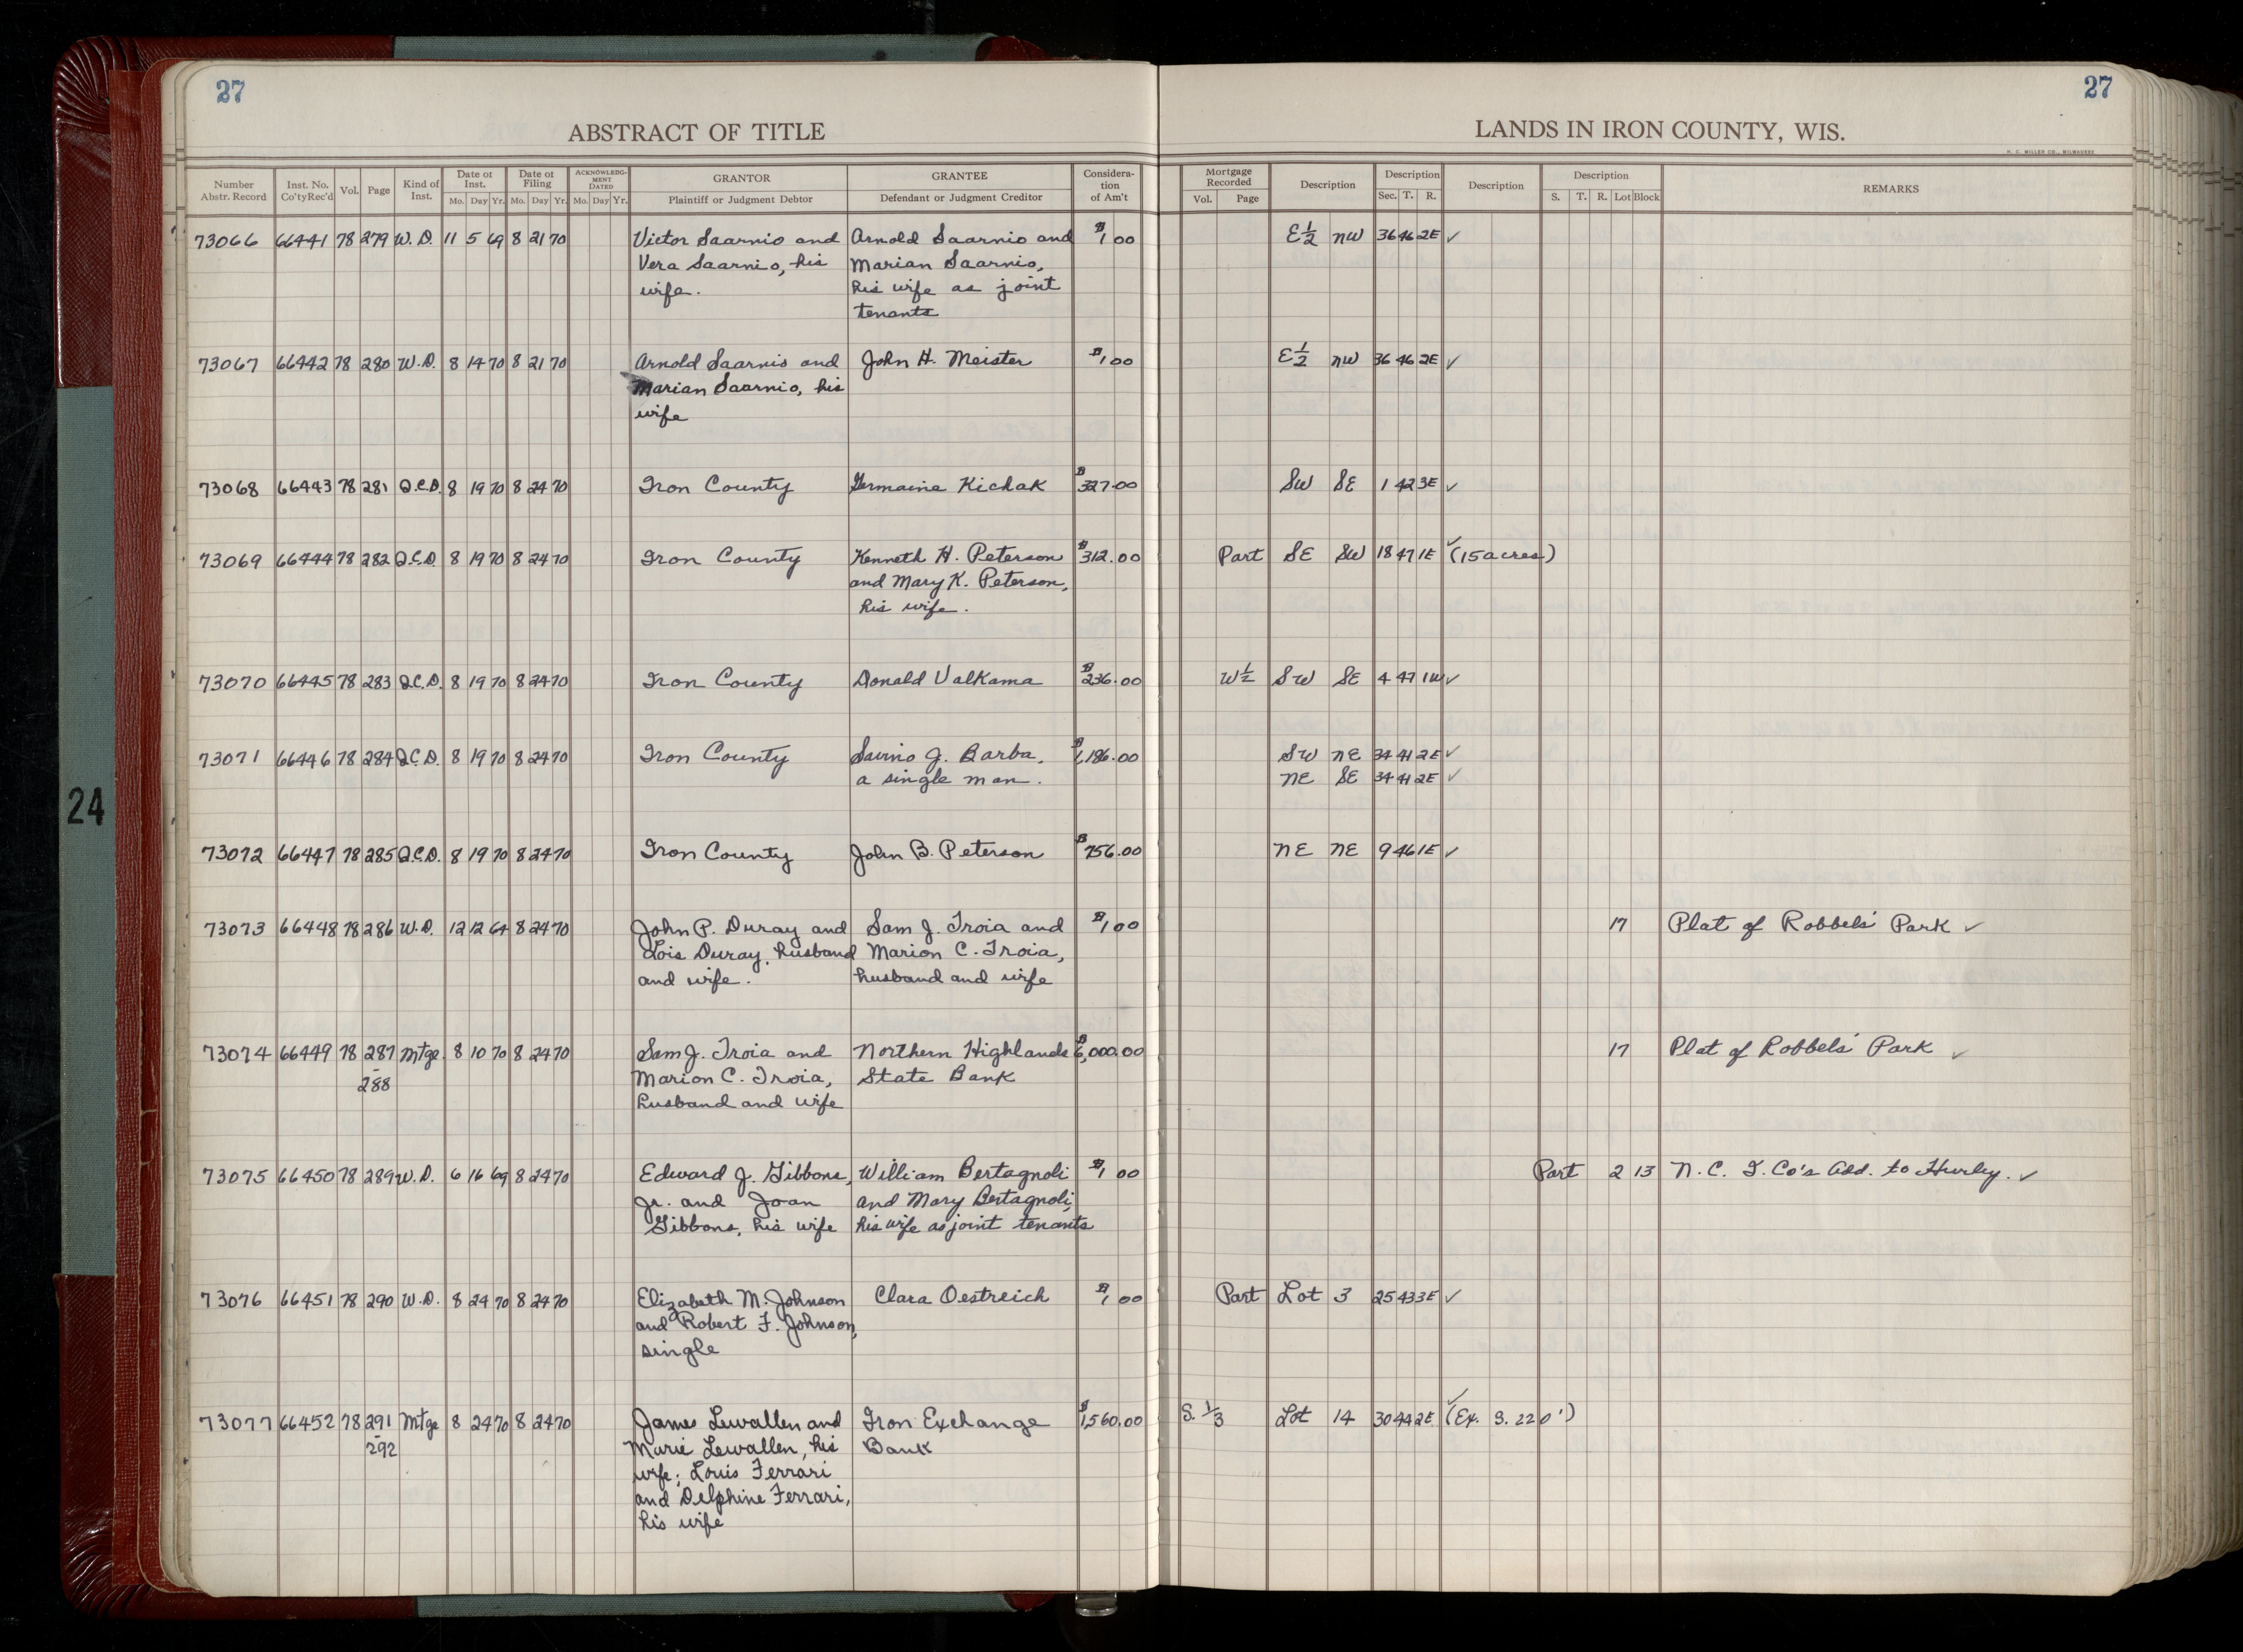 27
27
ABSTRACT OF TITLE
LANDS IN IRON COUNTY, WIS.
H. C. MILLER CO., MILWAUKEE
Number Abstr. Record Inst. No. Co'ty Rec'd Vol. Page Kind of Inst. Date of Inst. Mo. Day Yr. Date of Filing Mo. Day Yr. ACKNOWLEDG-MENT DATED Mo. Day Yr. GRANTOR Plaintiff or Judgment Debtor GRANTEE Defendant or Judgment Creditor Considera-tion of Am't Mortgage Recorded Vol. Page Description Description Sec. T. R. Description Description S. T. R. Lot Block REMARKS
73066 66441 78 279 W.D. 11 5 69 8 21 70 Victor Saarnio and Arnold Saarnio and $1 00 E½ NW 36 46 2E ✓
Vera Saarnio, his Marian Saarnio,
wife. his wife as joint
tenants
73067 66442 78 280 W.D. 8 14 70 8 21 70 Arnold Saarnio and John H. Meister $1 00 E½ NW 36 46 2E ✓
Marian Saarnio, his
wife
73068 66443 78 281 Q.C.D. 8 19 70 8 24 70 Iron County Germaine Kichak $327.00 SW SE 1 42 3E ✓
73069 66444 78 282 Q.C.D. 8 19 70 8 24 70 Iron County Kenneth H. Peterson $312.00 Part SE SW 18 47 1E ✓ (15 acres)
and Mary K. Peterson,
his wife.
73070 66445 78 283 Q.C.D. 8 19 70 8 24 70 Iron County Donald Valkama $236.00 W½ SW SE 4 47 1W ✓
73071 66446 78 284 Q.C.D. 8 19 70 8 24 70 Iron County Savino J. Barba, $1,186.00 SW NE 34 41 2E ✓
a single man. NE SE 34 41 2E ✓
73072 66447 78 285 Q.C.D. 8 19 70 8 24 70 Iron County John B. Peterson $756.00 NE NE 9 46 1E ✓
73073 66448 78 286 W.D. 12 12 64 8 24 70 John P. Duray and Sam J. Troia and $1 00 17 Plat of Robbels' Park ✓
Lois Duray, husband Marion C. Troia,
and wife. husband and wife
73074 66449 78 287 Mtge. 8 10 70 8 24 70 Sam J. Troia and Northern Highlands $6,000.00 17 Plat of Robbels' Park ✓
- 288 Marion C. Troia, State Bank
husband and wife
73075 66450 78 289 W.D. 6 16 69 8 24 70 Edward J. Gibbons, William Bertagnoli $1 00 Part 2 13 N. C. I. Co's Add. to Hurley. ✓
Jr. and Joan and Mary Bertagnoli,
Gibbons, his wife his wife as joint tenants
73076 66451 78 290 W.D. 8 24 70 8 24 70 Elizabeth M. Johnson Clara Oestreich $1 00 Part Lot 3 25 43 3E ✓
and Robert F. Johnson,
single
73077 66452 78 291 Mtge 8 24 70 8 24 70 James Lewallen and Iron Exchange $1,560.00 S. 1/3 Lot 14 30 44 2E ✓ (Ex. S. 220')
- 292 Marie Lewallen, his Bank
wife; Louis Ferrari
and Delphine Ferrari,
his wife
24